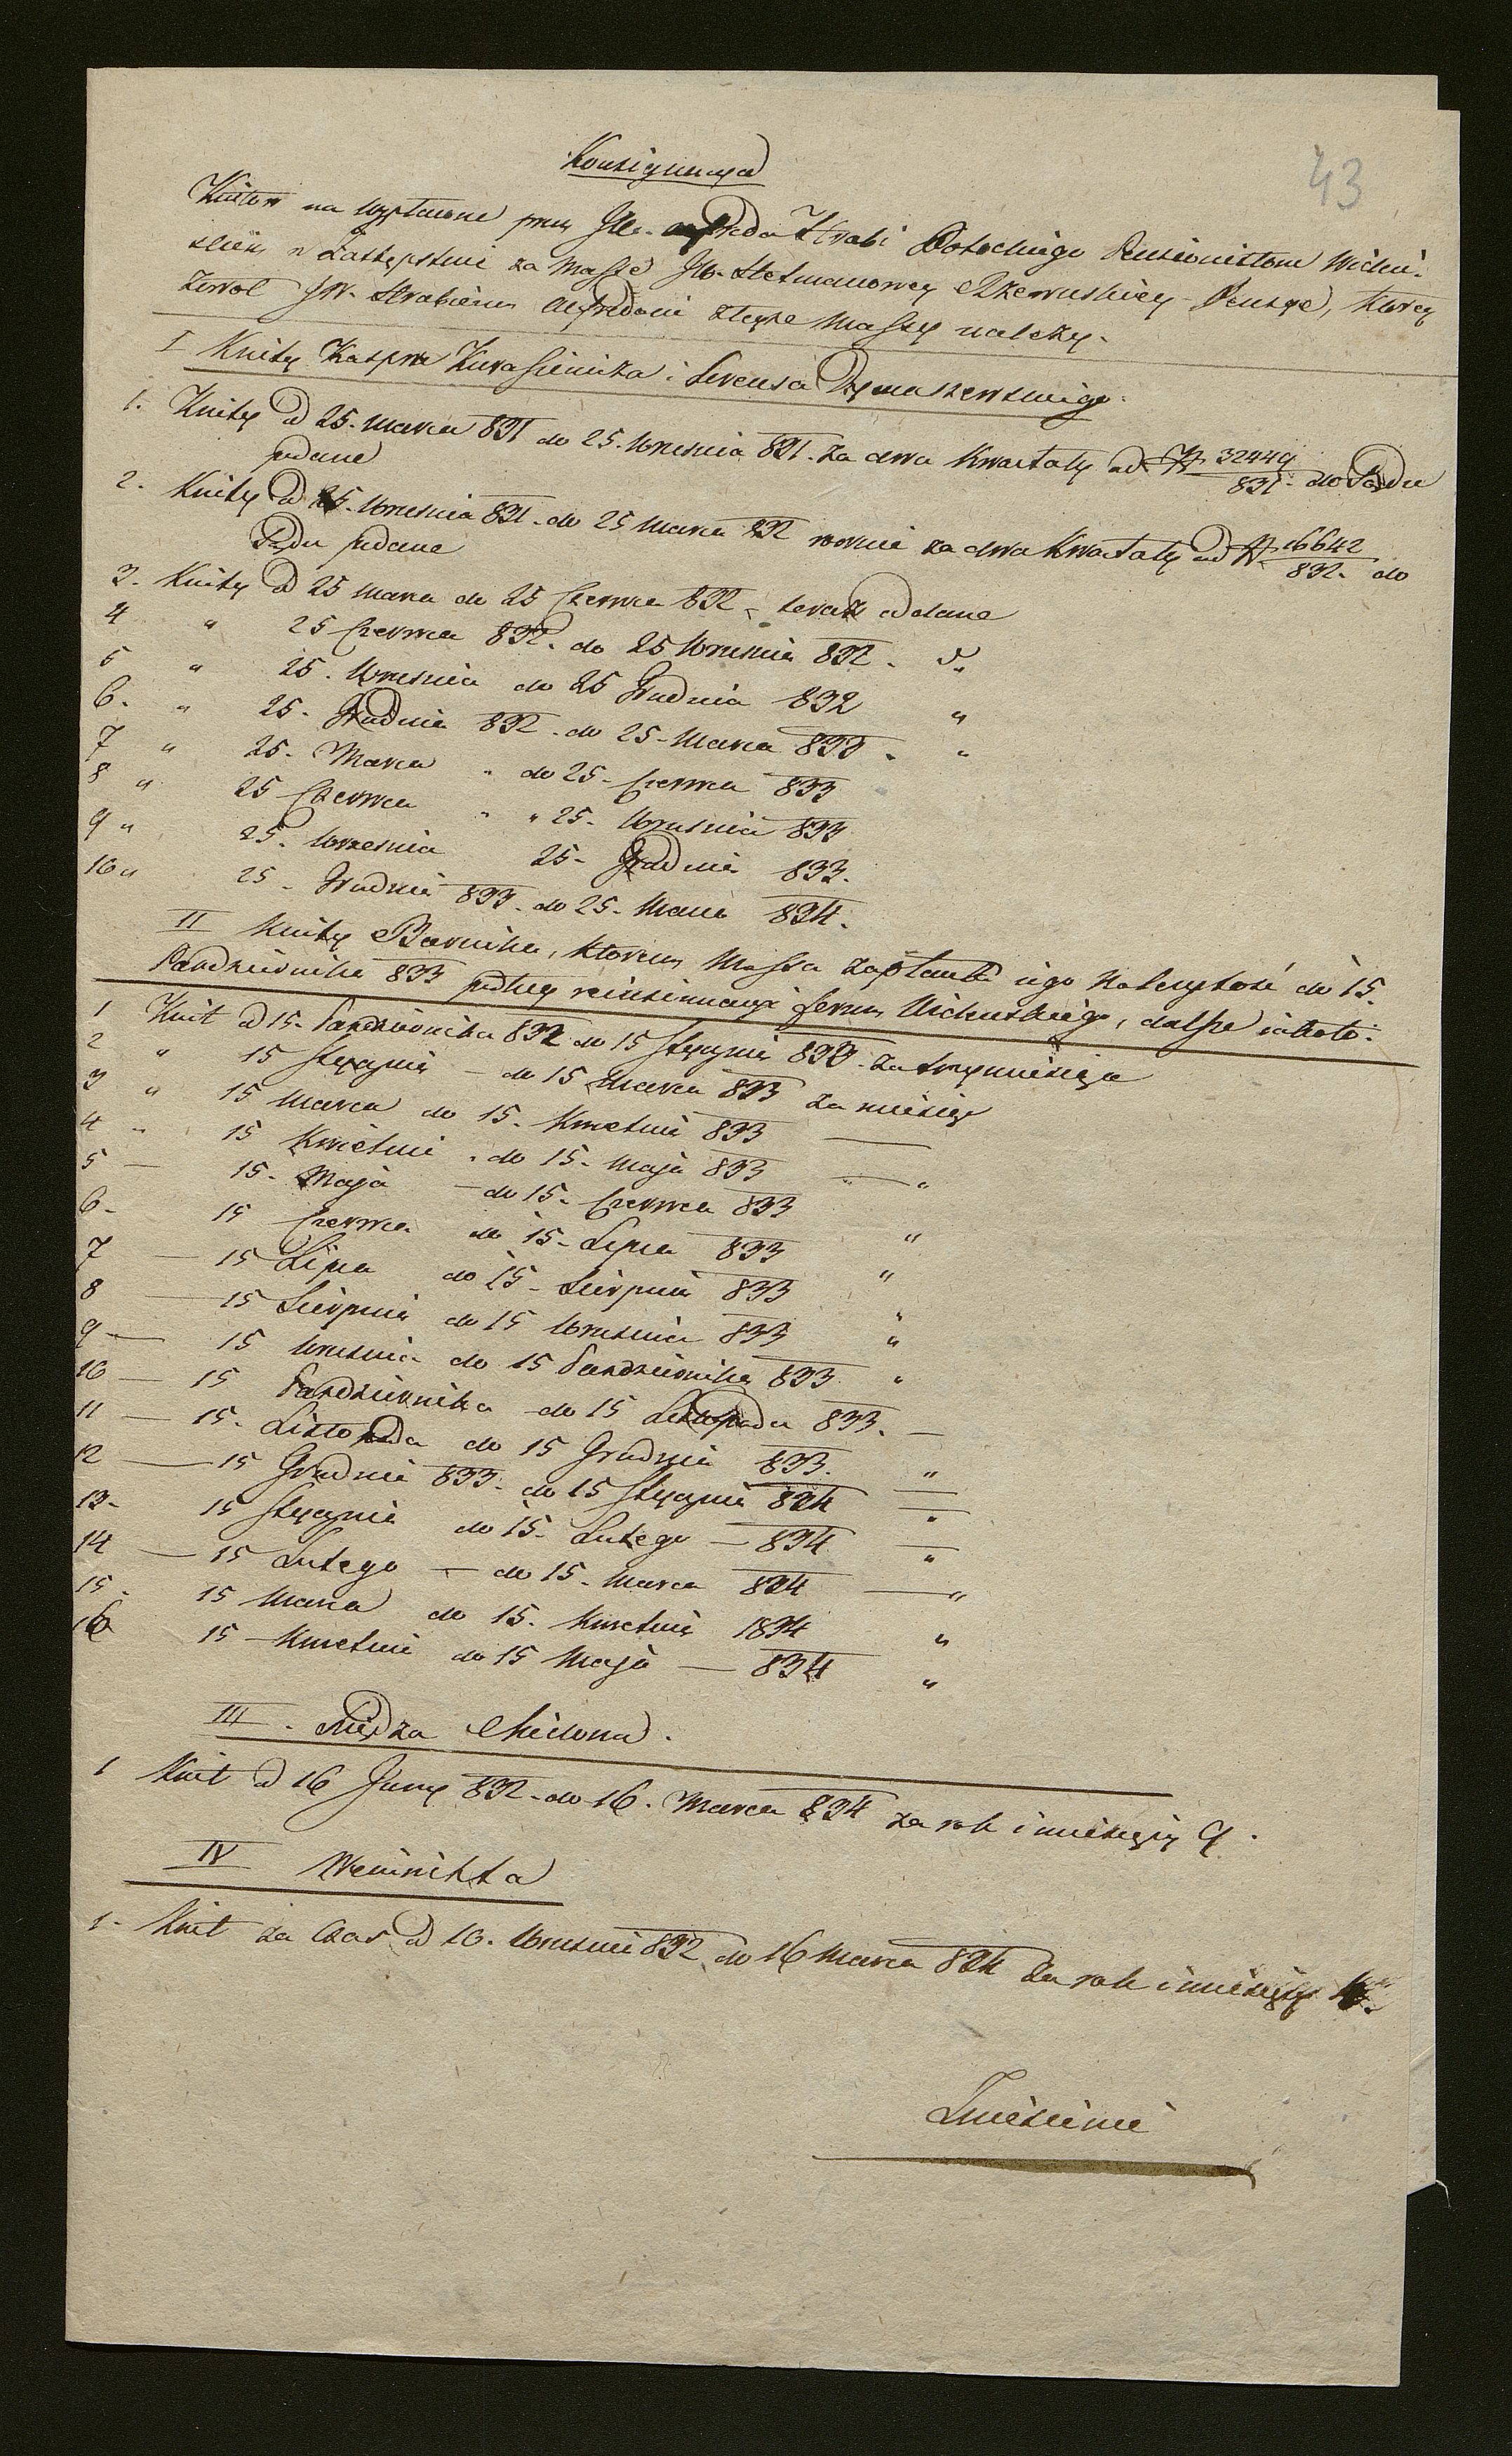 43
Konsignacya
Kwitow na wypłacone przez JW. Alfreda Hrabi Potockiego Pensionistom Wiedeń-
skiem w Zastępstwie za Massę JW. Hetmanowey Rzewuskiey Pensye, ktorey
zwrot JW. Hrabiemu Alfredowi z teyże Massy należy.
I Kwity Kaspra Kurasiewicza i Dymaszewskiego.
1. Kwity od 25. Marca 831 do 25. Września 831. za dwa Kwartały ad N 32449/831. do Sądu
podane
2. Kwity od 25. Września 831. do 25 Marca 832 rownie za dwa Kwartały ad N 16642/832. do
Sądu podane
3. Kwity od 25 Marca do 25 Czerwca 832. teraz oddane
4 " 25 Czerwca 832. do 25 Września 832. d.
5 " 25. Września do 25 Grudnia 832 "
6. " 25. Grudnia 832. do 25. Marca 833. "
7 " 25. Marca " do 25. Czerwca 833
8 " 25 Czerwca " " 25. Września 833
9 " 25. Września 25. Grudnia 833.
10 " 25. Grudnia 833. do 25. Marca 834.
II Kwity Barnika, ktorem Massa zapłaciła iego Należytość do 15.
Pazdziernika 833 podług Wichuskiego, dalsze
1 Kwit od 15. Pazdziernika 832 do 15 Stycznia 833. za trzy miesiące
2 " 15 Stycznia — do 15 Marca 833 za miesiąc
3 " 15 Marca do 15. Kwietnia 833 —
4 " 15 Kwietnia . do 15. Maja 833 — "
5 — 15. Maja — do 15. Czerwca 833
6. 15 Czerwca do 15. Lipca 833 "
7 — 15 Lipca do 15. Sierpnia 833 "
8 — 15 Sierpnia do 15 Września 833 "
9 — 15 Września do 15 Pazdziernika 833 "
10 — 15 Pazdziernika do 15 Listopada 833. —
11 — 15. Listopada do 15 Grudnia 833. "
12 — 15 Grudnia 833. do 15 Stycznia 834 — "
13. 15 Stycznia do 15. Lutego — 834 — "
14 — 15 Lutego — do 15. Marca 834 — "
15. 15 Marca do 15. Kwietnia 1834 "
16 15 Kwietnia do 15 Maja — 834 "
III.
1 Kwit od 16 Juny 832. do 16. Marca 834 za rok i miesięcy 9.
IV
1. Kwit za Czas od 16. Września 832. do 16 Marca 834 za rok i miesięcy